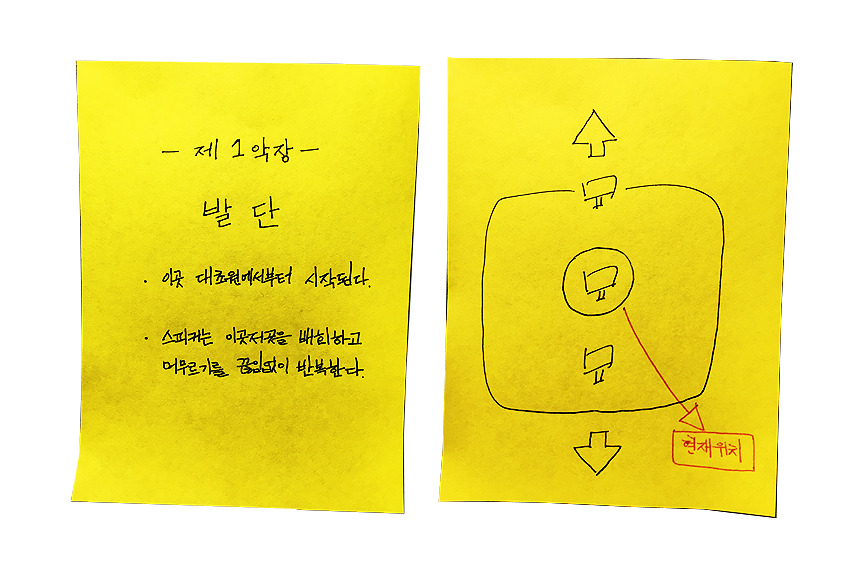 - 제 1 악장 -
발 단
· 이곳 대초원에서부터 시작된다.
· 스피커는 이곳저곳을 배회하고
머무르기를 끊임없이 반복한다.
현재위치